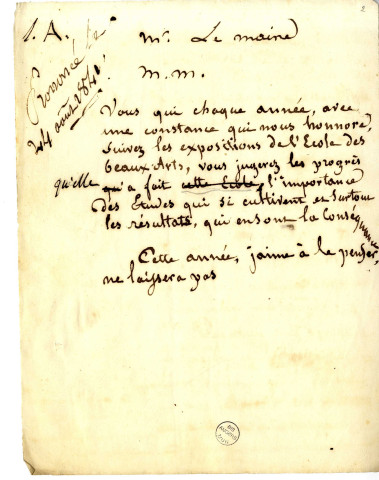 2
1. A.
Prononcé le
24 août 1840
Mr. Le maire
M. M.
Vous qui chaque année, avec
une constance qui nous honnore,
Suivez les expositions de l'Ecole des
beaux Arts, vous jugerez les progrès
qu'elle qu'a fait cette Ecole, l'importance
des Etudes qui s'i cultivent et Surtout
les résultats, qui en sont la Conséquence
Cette année, j'aime à le penser,
ne laissera pas